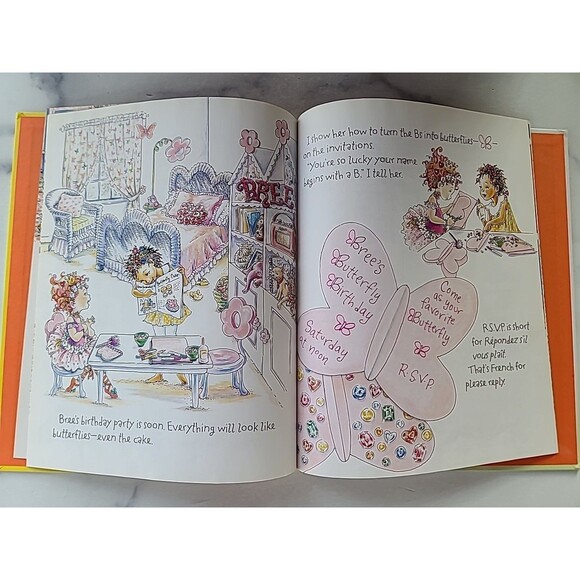 BREE
Bree's birthday party is soon. Everything will look like
butterflies—even the cake.
I show her how to turn the Bs into butterflies—
on the invitations.
"You're so lucky your name
begins with a B," I tell her.
Bree's
Butterfly
Birthday
Saturday
at noon
Come
as your
favorite
Butterfly
R.S.V.P.
R.S.V.P. is short
for Répondez s'il
vous plaît.
That's French for
please reply.